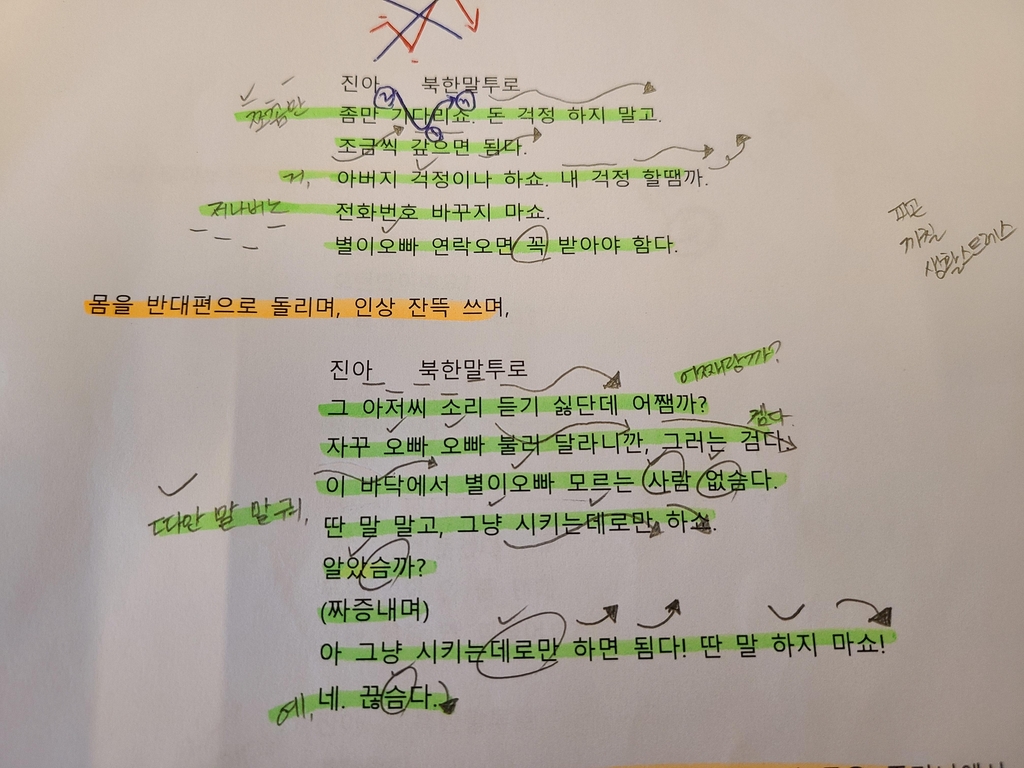 진아 북한말투로
쪼꼼만 좀만 기다리쇼. 돈 걱정 하지 말고.
조금씩 갚으면 됨다.
거, 아버지 걱정이나 하쇼. 내 걱정 할땜까.
저나버는 전화번호 바꾸지 마쇼.
별이오빠 연락오면 꼭 받아야 함다.
피곤
까칠
생활스트레스
몸을 반대편으로 돌리며, 인상 잔뜩 쓰며,
진아 북한말투로
어째랑까?
그 아저씨 소리 듣기 싫단데 어쨈까?
켐다.
자꾸 오빠 오빠 불러 달라니깐, 그러는 검다.
이 바닥에서 별이오빠 모르는 사람 없슴다.
따만 말 말귀, 딴 말 말고, 그냥 시키는데로만 하쇼.
알았슴까?
(짜증내며)
아 그냥 시키는데로만 하면 됨다! 딴 말 하지 마쇼!
예, 네. 끊슴다.